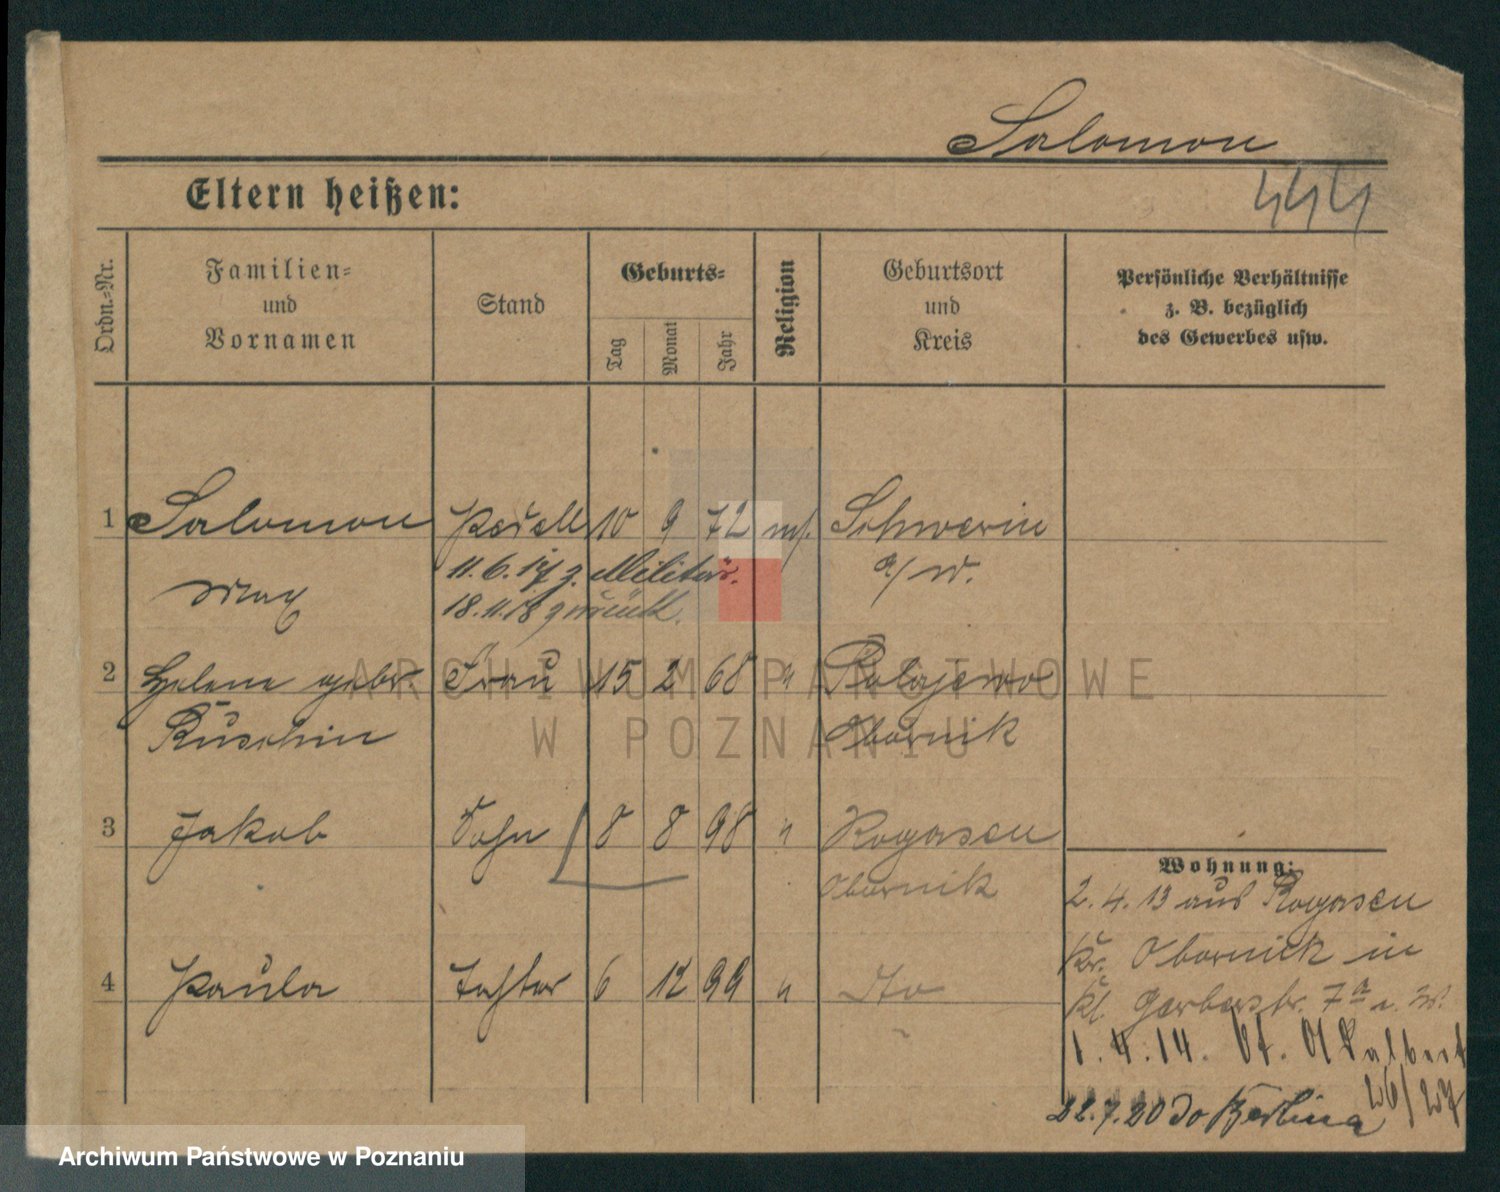 Salomon
444
Eltern heißen:
Ordn.-Nr.
Familien- und Vornamen
Stand
Geburts-
Tag
Monat
Jahr
Religion
Geburtsort und Kreis
Persönliche Verhältnisse z. B. bezüglich des Gewerbes usw.
1 Salomon Pedell 10 9 72 mos. Schwerin
Max 11.6.17 z. Militär. a/W.
18.11.18 zurück.
2 Helene gebr Frau 15 2 68 " Polajewo
Kuschin Obornik
3 Jakob Sohn 8 8 98 " Rogasen
Obornik
Wohnung:
2.4.13 aus Rogasen
Kr. Obornick in
4 Paula Tochter 6 12 99 " Dto
Kl. Gerberstr. 7a
1.4.14. St. Adalbert
26/27
22.7.20 do Berlina
ARCHIWUM PAŃSTWOWE
W POZNANIU
Archiwum Państwowe w Poznaniu